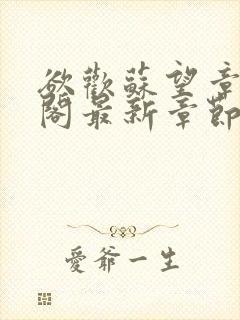 欲歡蘇望章
閣最新章節
愛爺一生